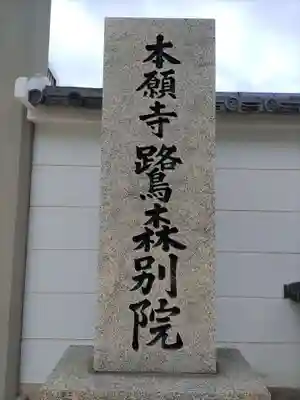 本願寺鷺森別院